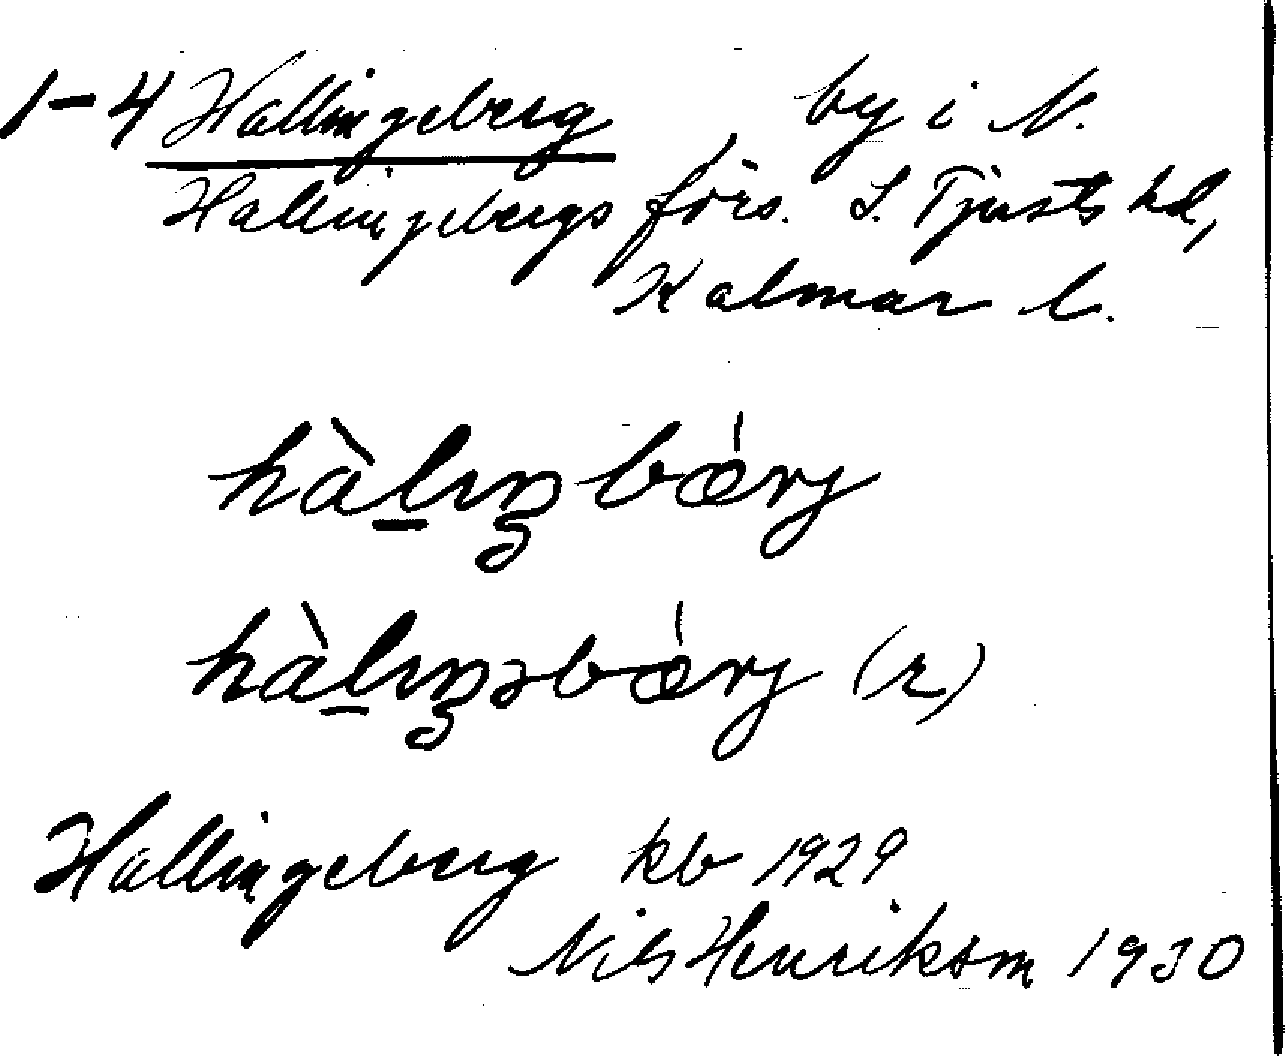 1-4 Hallingeberg by i N.
Hallingebergs förs. S. Tjusts hd,
Kalmar l.
hàlıŋbǽrj
hàlıŋəbǽrj (r)
Hallingeberg kb 1929
Nils Henrikson 1930